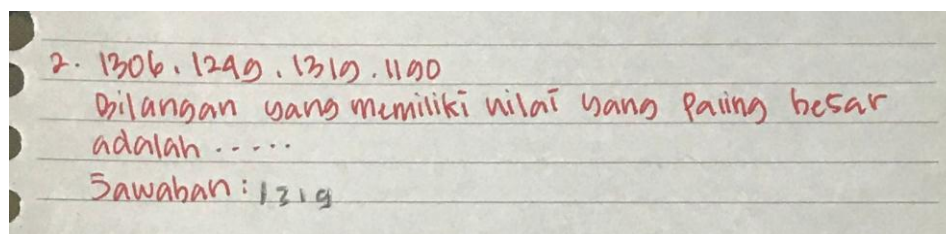 2. 1306, 1249, 1319, 1190
Bilangan yang memiliki nilai yang Paling besar
adalah .....
Jawaban : 1319